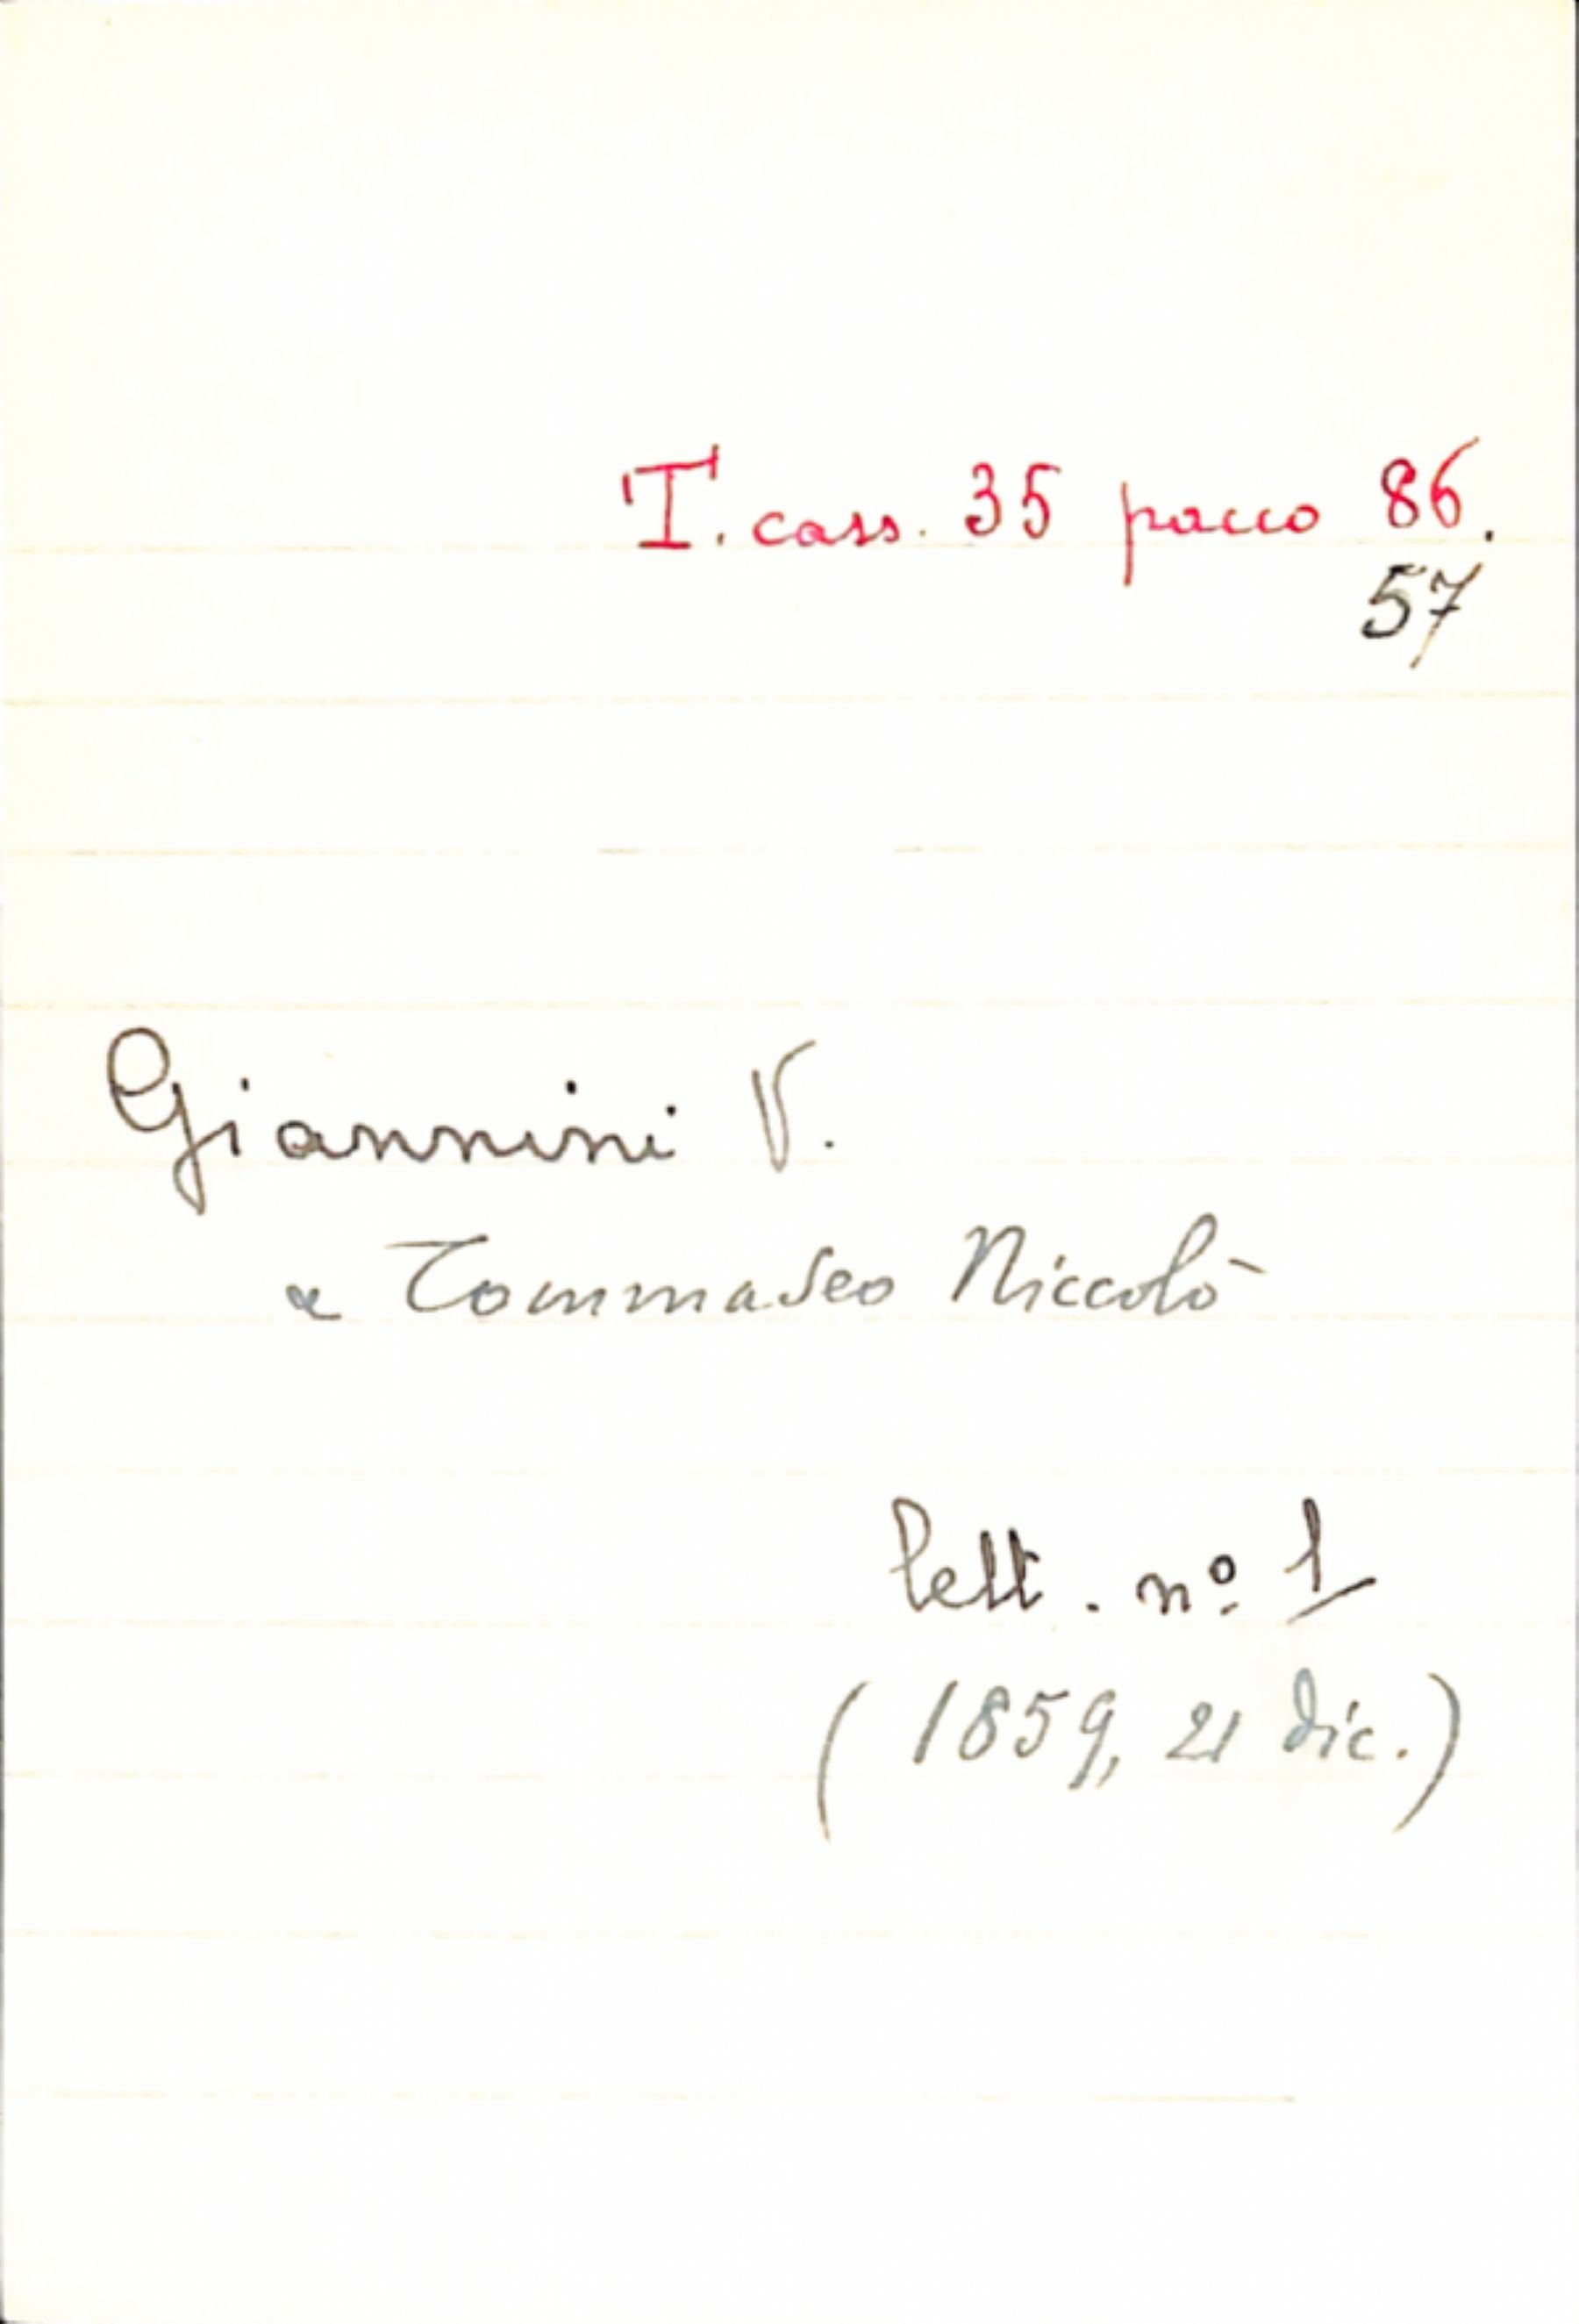 T. cass. 35 pacco 86.
57
Giannini V.
a Tommaseo Niccolò
lett. nº 1
(1859, 21 dic.)